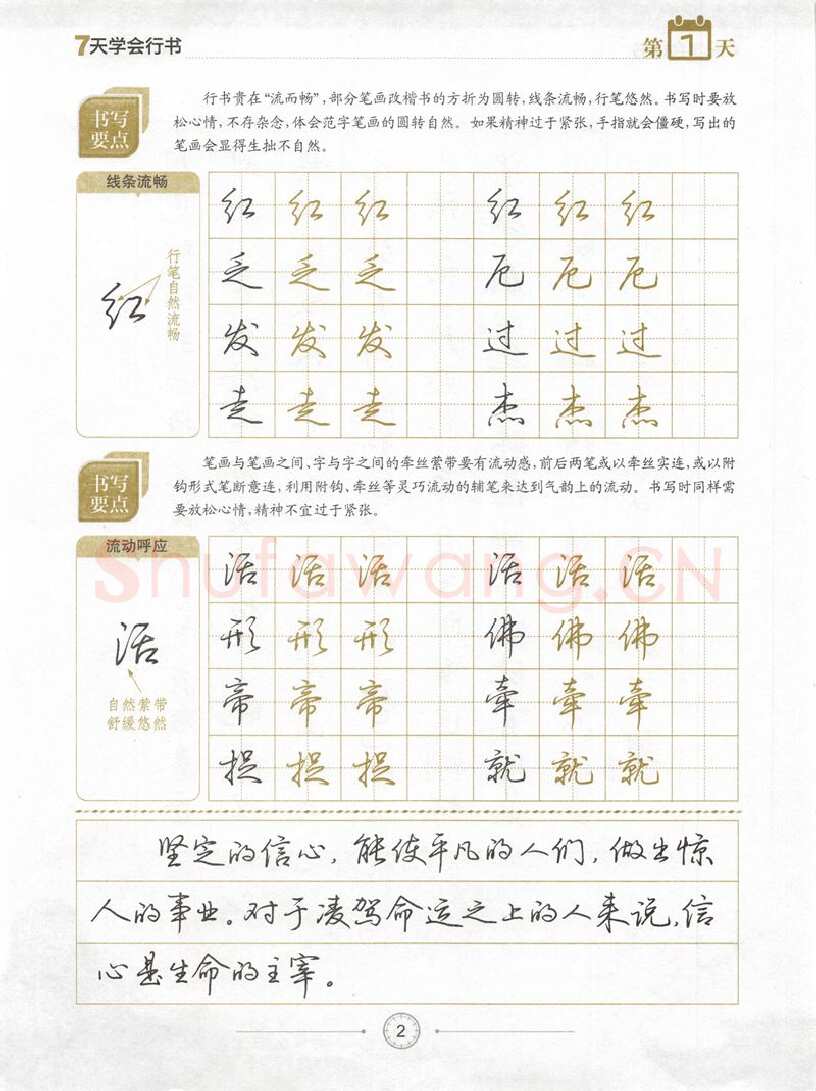 7天学会行书
第1天
书写要点
行书贵在“流而畅”,部分笔画改楷书的方折为圆转,线条流畅,行笔悠然。书写时要放
松心情,不存杂念,体会范字笔画的圆转自然。如果精神过于紧张,手指就会僵硬,写出的
笔画会显得生拙不自然。
线条流畅
红
行笔自然流畅
红 红 红 红 红 红
乏 乏 乏 厄 厄 厄
发 发 发 过 过 过
走 走 走 杰 杰 杰
书写要点
笔画与笔画之间、字与字之间的牵丝萦带要有流动感,前后两笔或以牵丝实连,或以附
钩形式笔断意连,利用附钩、牵丝等灵巧流动的辅笔来达到气韵上的流动。书写时同样需
要放松心情,精神不宜过于紧张。
流动呼应
活
自然萦带
舒缓悠然
活 活 活 活 活 活
形 形 形 佛 佛 佛
帝 帝 帝 牵 牵 牵
损 损 损 就 就 就
Shufawang.CN
坚定的信心,能使平凡的人们,做出惊
人的事业。对于凌驾命运之上的人来说,信
心是生命的主宰。
2